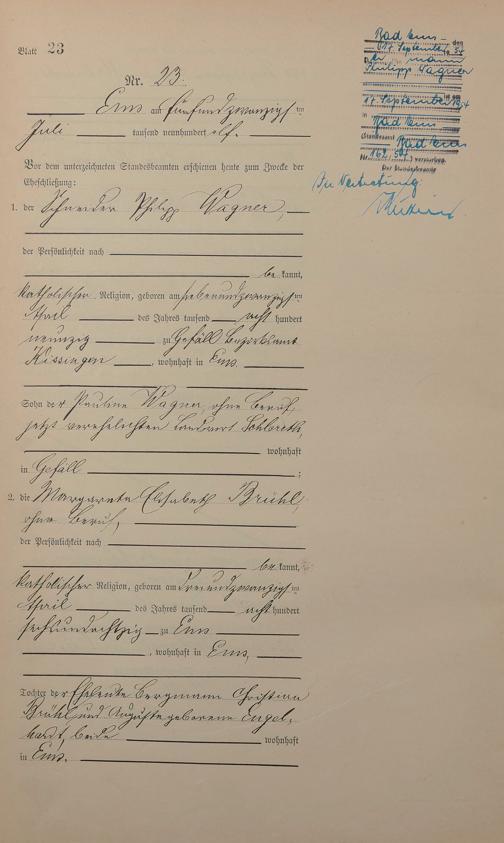 Blatt 23
Nr. 23.
Ems am fünfundzwanzigsten
Juli tausend neunhundert elf.
Vor dem unterzeichneten Standesbeamten erschienen heute zum Zwecke der
Eheschließung:
1. der Schneider Philipp Wagner,
der Persönlichkeit nach
be kannt,
katholischer Religion, geboren am siebenundzwanzigsten
April des Jahres tausend acht hundert
neunzig zu Gefäll Bezirksamt
Kissingen, wohnhaft in Ems.
Sohn der Pauline Wagner, ohne Beruf,
jetzt verehelichten Landwirt
wohnhaft
in Gefäll ;
2. die Margareta Elisabeth Brühl,
ohne Beruf,
der Persönlichkeit nach
be kannt,
katholischer Religion, geboren am dreiundzwanzigsten
April des Jahres tausend acht hundert
sechsundachtzig zu Ems
, wohnhaft in Ems,
Tochter der Eheleute Bergmann Christian
Brühl und Auguste geborene Engel-
hardt, beide wohnhaft
in Ems.
Bad Ems den
17. September 54
Philipp Wagner
17. September 1954
Bad Ems
Standesamt Bad Ems
Der Standesbeamte
In Vertretung